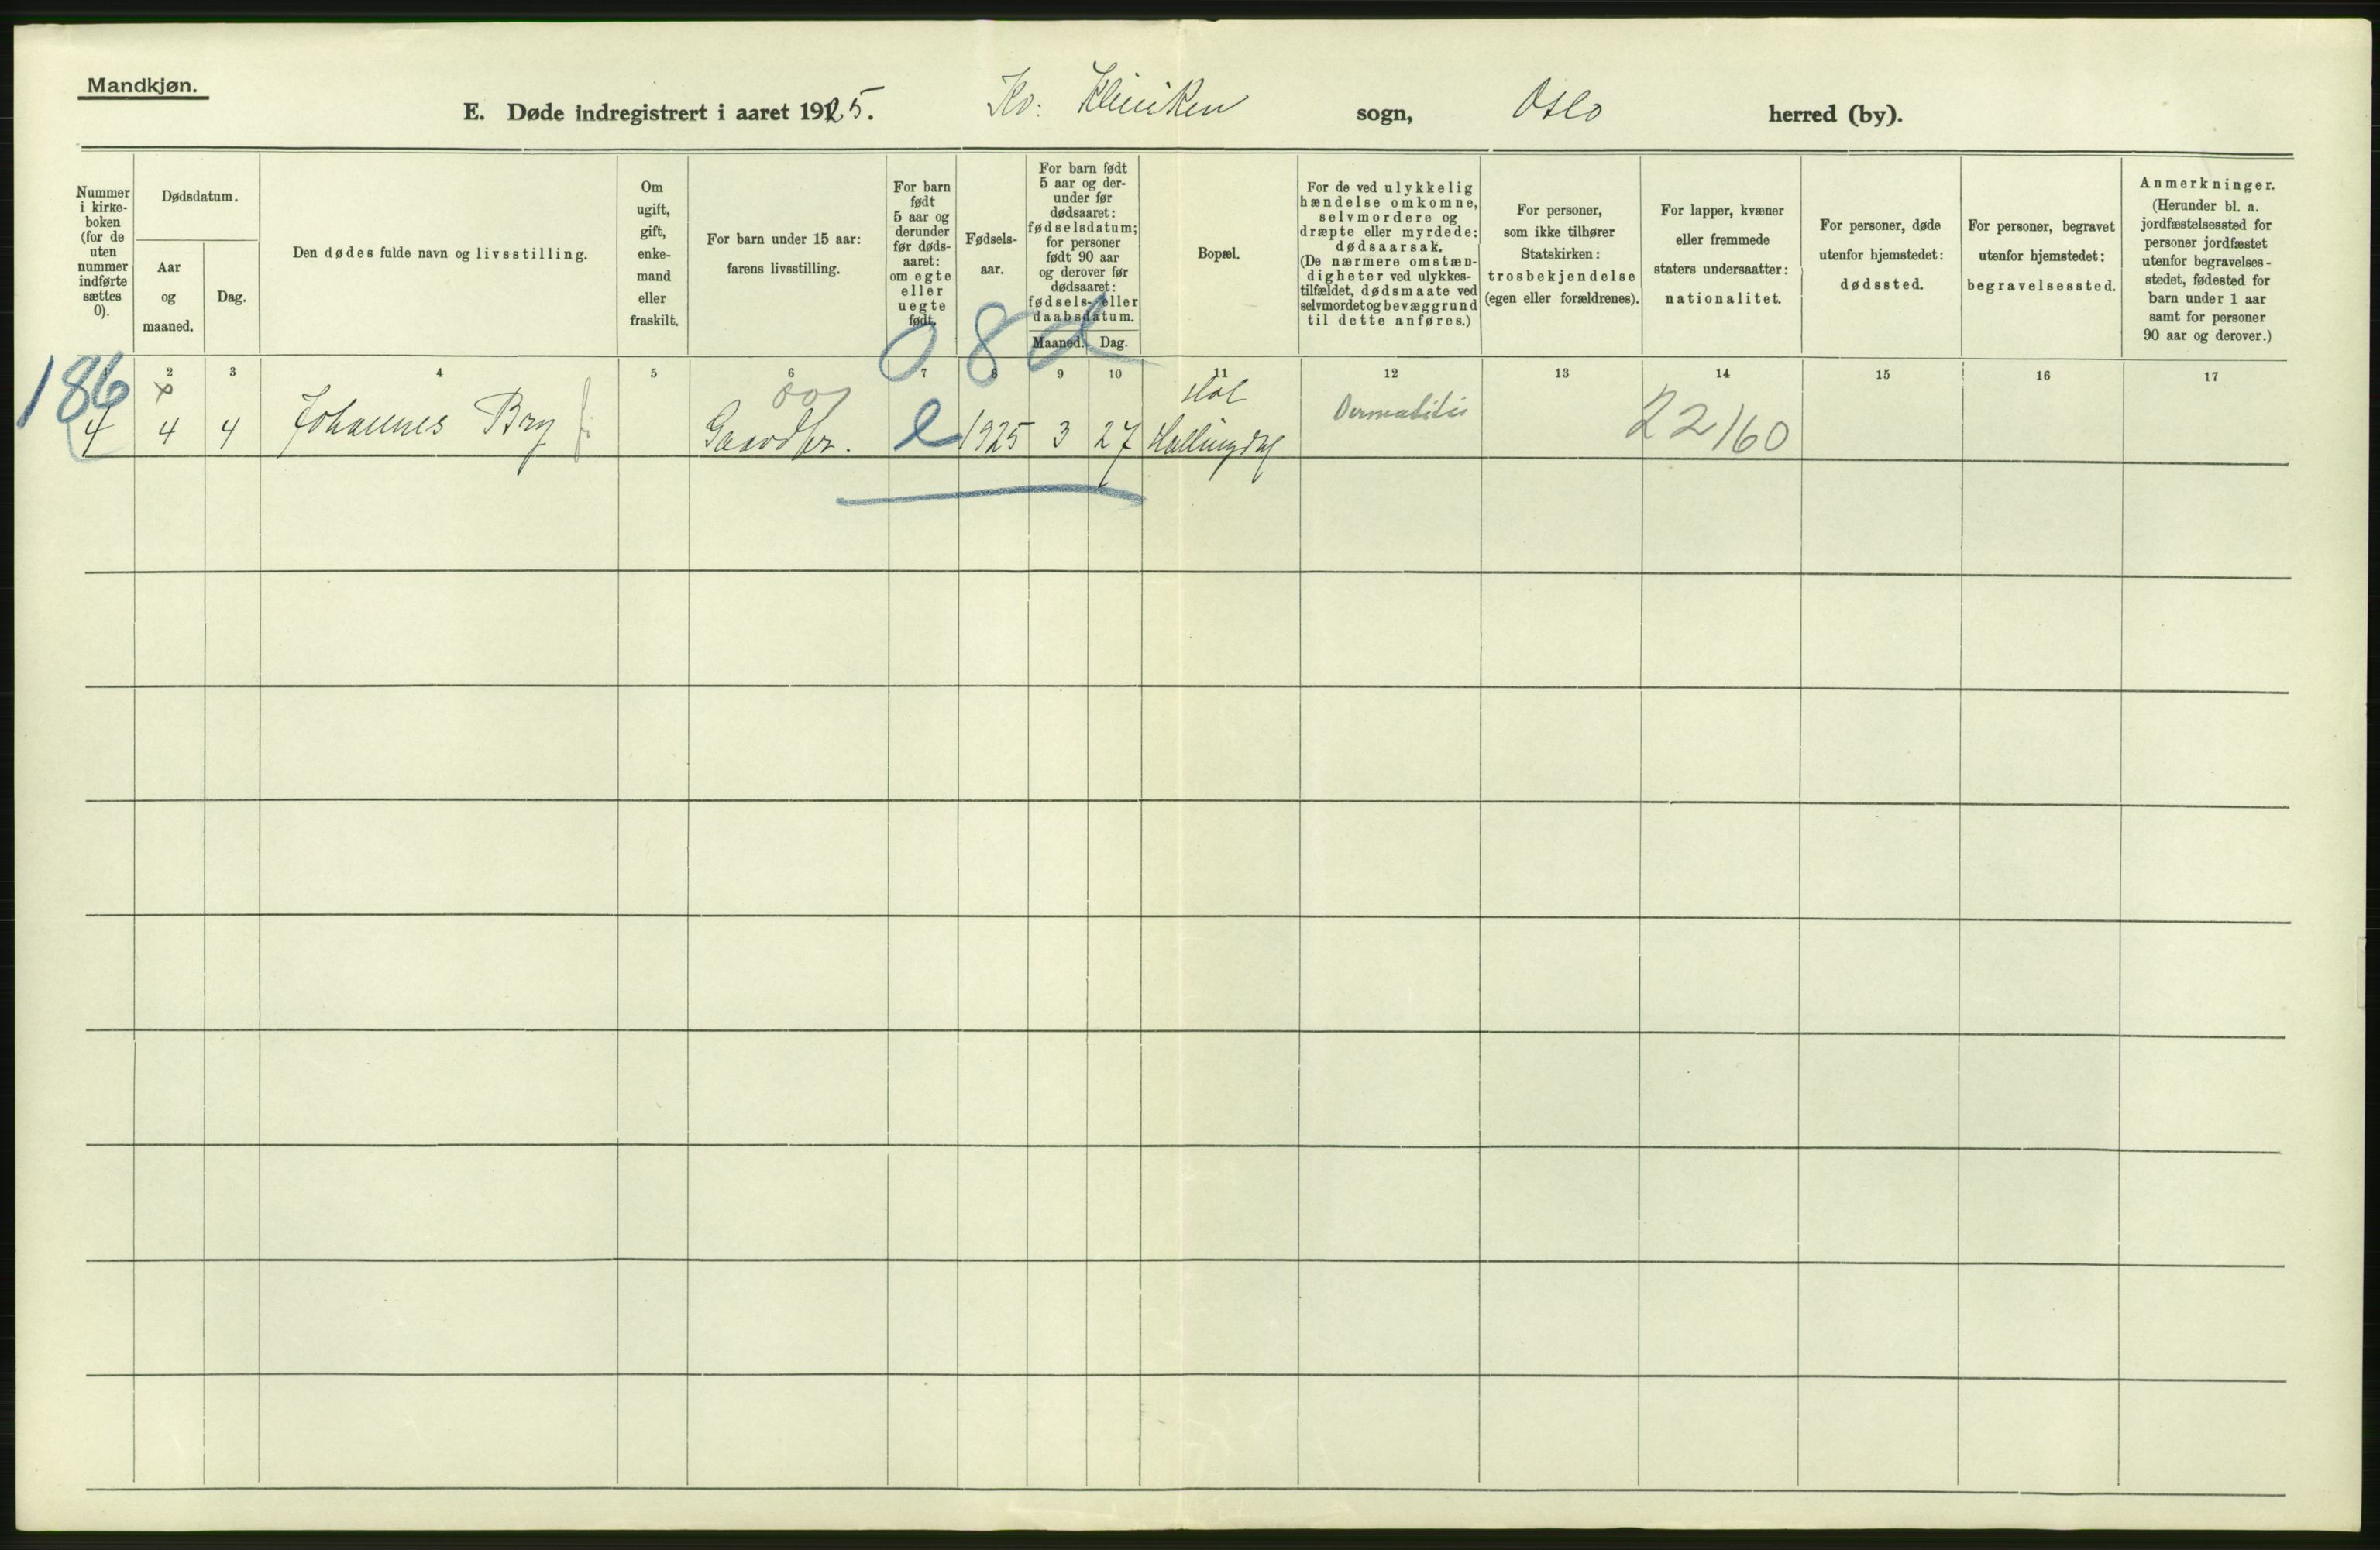 Mandkjøn.
E. Døde indregistrert i aaret 1925. Kv. Kliniken sogn, Oslo herred (by).
Nummer
i kirke-
boken
(for de
uten
nummer
indførte
sættes
0).
Dødsdatum.
Aar
og
maaned.
Dag.
Den dødes fulde navn og livsstilling.
Om
ugift,
gift,
enke-
mand
eller
fraskilt.
For barn under 15 aar:
farens livsstilling.
For barn
født
5 aar og
derunder
før døds-
aaret:
om egte
eller
uegte
født.
Fødsels-
aar.
For barn født
5 aar og der-
under før
dødsaaret:
fødselsdatum;
for personer
født 90 aar
og derover før
dødsaaret:
fødsels- eller
daabsdatum.
Maaned. Dag.
Bopæl.
For de ved ulykkelig
hændelse omkomne,
selvmordere og
dræpte eller myrdede:
dødsaarsak.
(De nærmere omstæn-
digheter ved ulykkes-
tilfældet, dødsmaate ved
selvmordet og bevæggrund
til dette anføres.)
For personer,
som ikke tilhører
Statskirken:
trosbekjendelse
(egen eller forældrenes).
For lapper, kvæner
eller fremmede
staters undersaatter:
nationalitet.
For personer, døde
utenfor hjemstedet:
dødssted.
For personer, begravet
utenfor hjemstedet:
begravelsessted.
Anmerkninger.
(Herunder bl. a.
jordfæstelsessted for
personer jordfæstet
utenfor begravelses-
stedet, fødested for
barn under 1 aar
samt for personer
90 aar og derover.)
2 3 4 5 6 7 8 9 10 11 12 13 14 15 16 17
186
08d
Hol
4 4 4 Johannes Bry Gaardbr. e 1925 3 27 Hallingdal Dermatitis 22160